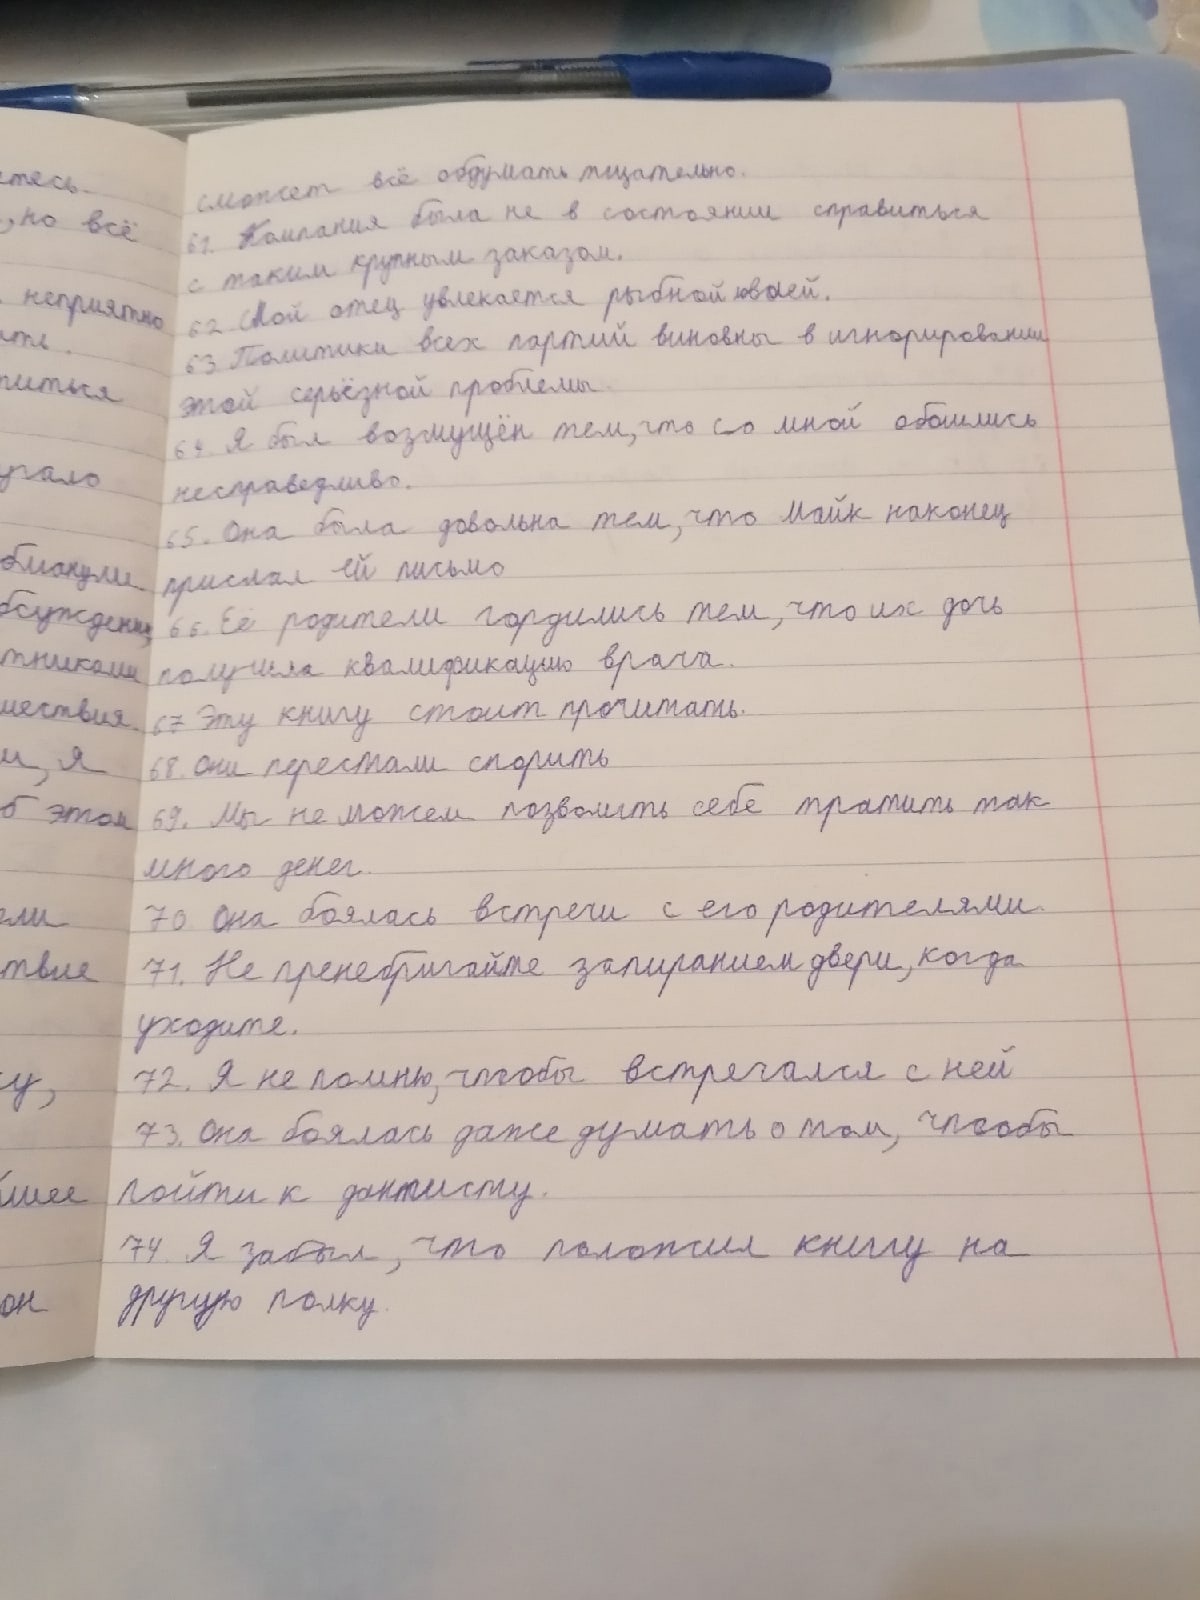 тесь.
, но всё
неприятно
ать.
титься
угало
обманули
бсуждении,
тниками
шествия.
и, я
б этом
ели
твие
ку,
йшее
он
сможет всё обдумать тщательно.
61. Компания была не в состоянии справиться
с таким крупным заказом.
62. Мой отец увлекается рыбной ловлей.
63 Политики всех партий виновны в игнорировании
этой серьёзной проблемы.
64. Я был возмущён тем, что со мной обошлись
несправедливо.
65. Она была довольна тем, что Майк наконец
прислал ей письмо
66. Её родители гордились тем, что их дочь
получила квалификацию врача.
67 Эту книгу стоит прочитать.
68. Они перестали спорить
69. Мы не можем позволить себе тратить так
много денег.
70 Она боялась встречи с его родителями.
71. Не пренебригайте запиранием двери, когда
уходите.
72. Я не помню, чтобы встречался с ней
73. Она боялась даже думать о том, чтобы
пойти к дантисту.
74. Я забыл, что положил книгу на
другую полку.